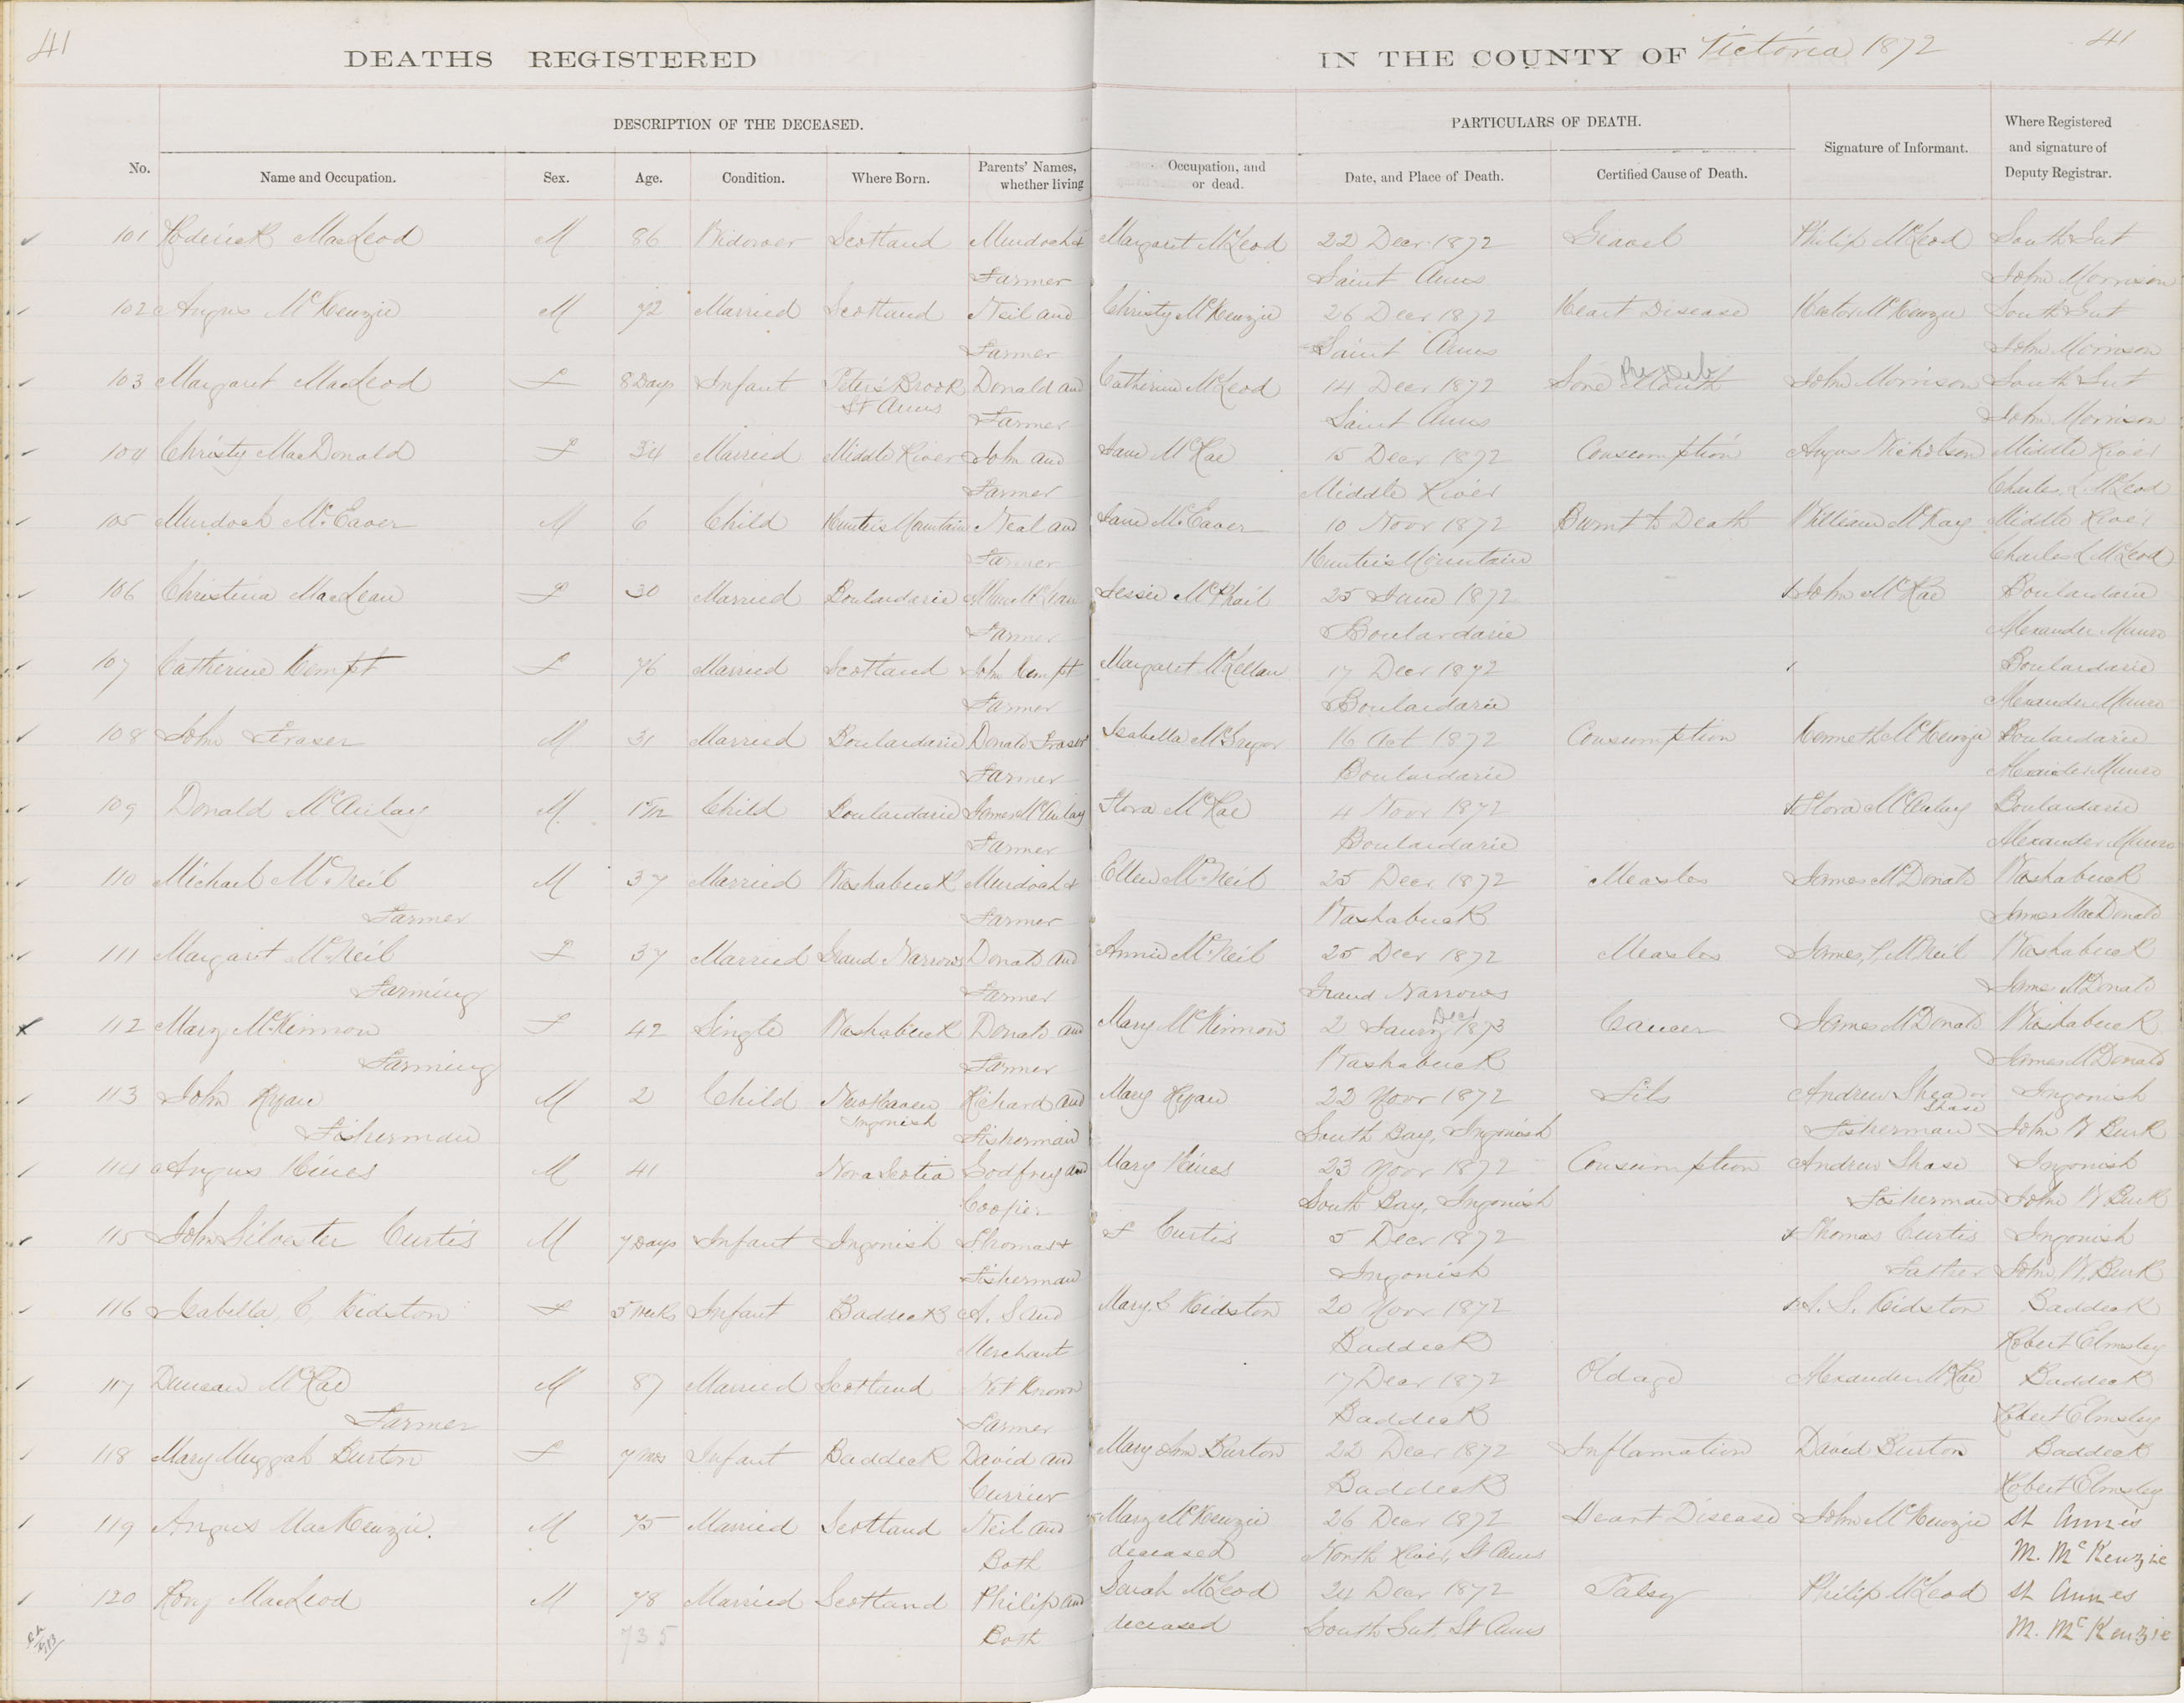 41
DEATHS REGISTERED IN THE COUNTY OF Victoria 1872
41
DESCRIPTION OF THE DECEASED. PARTICULARS OF DEATH.
No. Name and Occupation. Sex. Age. Condition. Where Born. Parents' Names, whether living Occupation, and or dead. Date, and Place of Death. Certified Cause of Death. Signature of Informant. Where Registered and signature of Deputy Registrar.
101 Roderick MacLeod M 86 Widower Scotland Murdoch & Margaret McLeod 22 Decr 1872 Gravel Philip McLeod South Gut
Farmer Saint Anns John Morrison
102 Angus McKenzie M 72 Married Scotland Neil and Christy McKenzie 26 Decr 1872 Heart Disease Hector McKenzie South Gut
Farmer Saint Anns John Morrison
103 Margaret MacLeod F 8 Days Infant Peter's Brook Donald and Catherine McLeod 14 Decr 1872 Sore Mouth John Morrison South Gut
St Anns Farmer Saint Anns John Morrison
104 Christy MacDonald F 34 Married Middle River John and Jane McRae 15 Decr 1872 Consumption Angus Nicholson Middle River
Farmer Middle River Charles L McLeod
105 Murdoch McEaver M 6 Child Hunter's Mountain Neal and Jane McEaver 10 Novr 1872 Burnt to Death William McKay Middle River
Farmer Hunter's Mountain Charles L McLeod
106 Christina MacLean F 30 Married Boulardarie Allan McLean Jessie McPhail 25 June 1872 John McRae Boulardarie
Farmer Boulardarie Alexander Munro
107 Catherine Kempt F 76 Married Scotland John Kempt Margaret McLellan 17 Decr 1872 Boulardarie
Farmer Boulardarie Alexander Munro
108 John Fraser M 31 Married Boulardarie Donald Fraser Isabella McGregor 16 Oct 1872 Consumption Kenneth McKenzie Boulardarie
Farmer Boulardarie Alexander Munro
109 Donald McAulay M Child Boulardarie James McAulay Flora McRae 4 Novr 1872 Flora McAulay Boulardarie
Farmer Boulardarie Alexander Munro
110 Michael McNeil M 37 Married Washabuck Murdoch & Ellen McNeil 25 Decr 1872 Measles James McDonald Washabuck
Farmer Farmer Washabuck James MacDonald
111 Margaret McNeil F 37 Married Grand Narrows Donald and Annie McNeil 25 Decr 1872 Measles James, P, McNeil Washabuck
Farming Farmer Grand Narrows James McDonald
112 Mary McKinnon F 42 Single Washabuck Donald and Mary McKinnon 2 Jany Decr 1873 Cancer James McDonald Washabuck
Farming Farmer Washabuck James McDonald
113 John Ryan M 2 Child New Haven Richard and Mary Ryan 22 Novr 1872 Fits Andrew Shea or Ingonish
Ingonish Shase
Fisherman Fisherman South Bay, Ingonish Fisherman John W Burk
114 Angus Hines M 41 Nova Scotia Godfrey and Mary Hines 23 Novr 1872 Consumption Andrew Shase Ingonish
Cooper South Bay, Ingonish Fisherman John W Burk
115 John Silvester Curtis M 7 Days Infant Ingonish Thomas & F Curtis 5 Decr 1872 Thomas Curtis Ingonish
Fisherman Ingonish Father John W, Burk
116 Isabella, C, Kidston F 5 Weeks Infant Baddeck A. S and Mary. E Kidston 20 Novr 1872 A. S. Kidston Baddeck
Merchant Baddeck Robert Elmsley
117 Duncan McRae M 87 Married Scotland Not Known 17 Decr 1872 Old age Alexander McRae Baddeck
Farmer Farmer Baddeck Robert Elmsley
118 Mary Muggah Burton F 7 mos Infant Baddeck David and Mary Ann Burton 22 Decr 1872 Inflamation David Burton Baddeck
Currier Baddeck Robert Elmsley
119 Angus MacKenzie. M 75 Married Scotland Neil and Mary McKenzie 26 Decr 1872 Heart Disease John McKenzie St Anns
Both deceased North River, St Anns M. McKenzie
120 Rory MacLeod M 78 Married Scotland Philip and Sarah McLeod 24 Decr 1872 Palsy Philip McLeod St Annes
735 Both deceased South Gut St Anns M. McKenzie